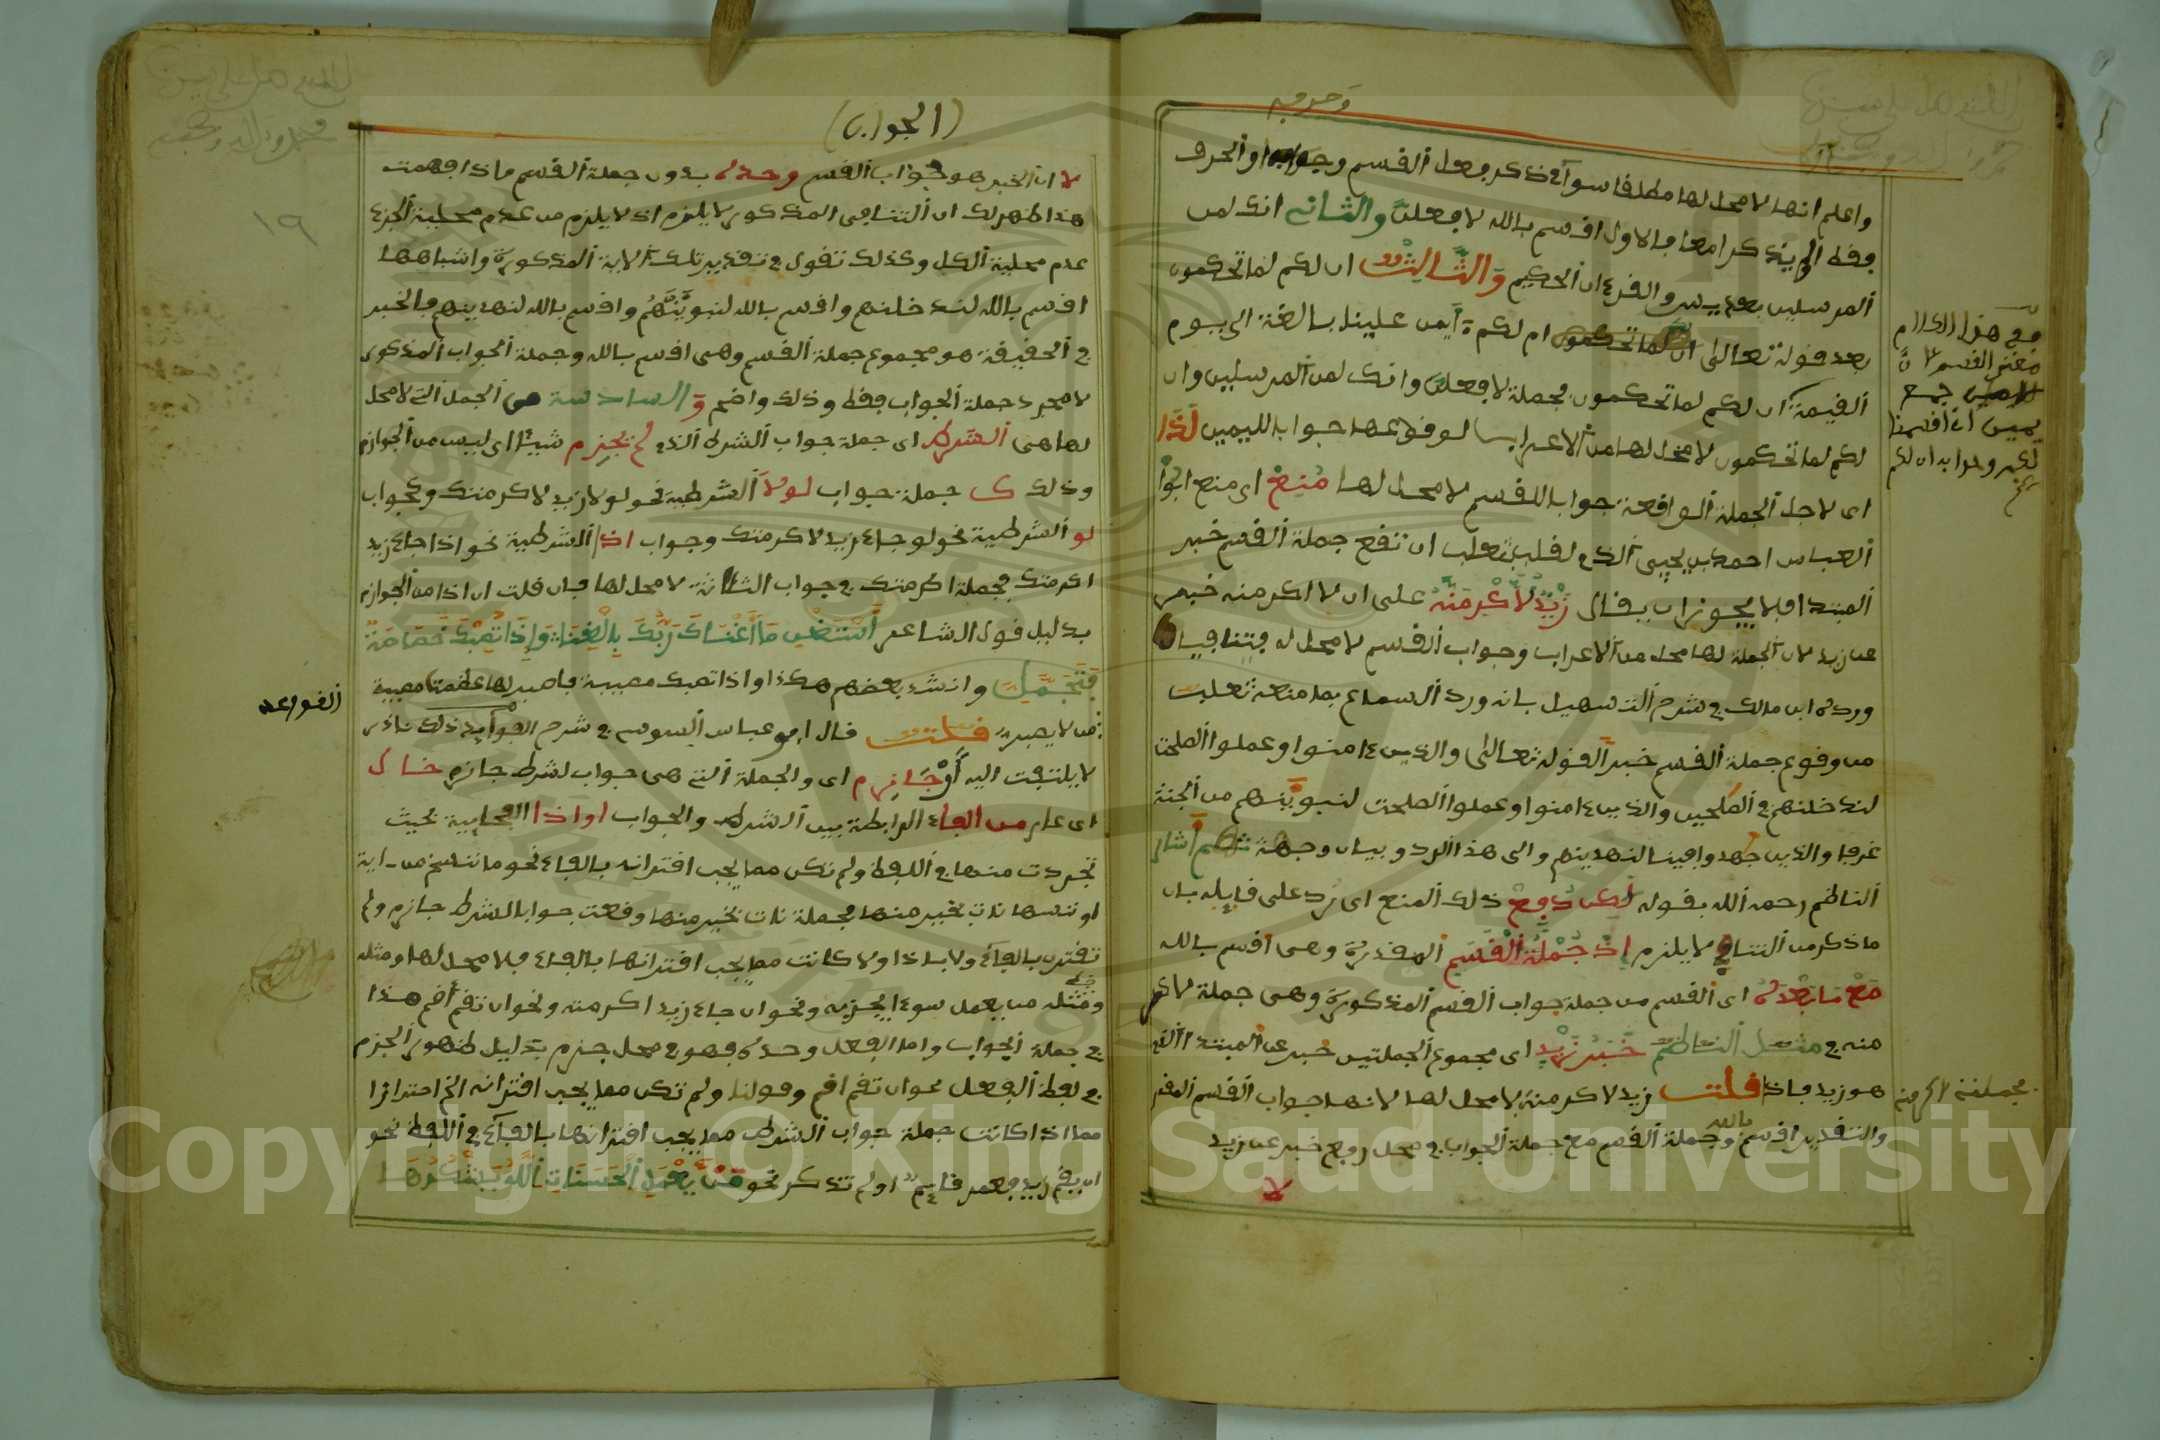 وحرفيه
واعلم انها لا محل لها مطلقا سواء ذكر فعل القسم وجوابه او الحرف
فقط الم يذكرا معا فالاول اقسم بالله لا فعلن والثاني انك لمن
المرسلين بعد يس والقرءان الحكيم والثالث ان لكم لما تحكمون
بعد قوله تعالى ام لكم ءايمن علينا بالغة الى يوم
القيمة ان لكم لما تحكمون فجملة لا فعلن وانك لمن المرسلين وان
لكم لما تحكمون لا محل لها من الاعراب لوقوعها جوابا لليمين لذا
اى لاجل الجملة الواقعة جوابا للقسم لا محل لها منع اى منع ابو
العباس احمد بن يحيى الذى لقب بثعلب ان تقع جملة القسم خبر
المبتدا فلا يجوز ان يقال زيد لأكرمنه على ان لا اكرمنه خبر
عن زيد لان الجملة لها محل من الاعراب وجواب القسم لا محل له فيتنافيان
ورده ابن مالك في شرح التسهيل بانه ورد السماع بما منعه ثعلب
من وقوع جملة القسم خبرا لقوله تعالى والذين ءامنوا وعملوا الصلحت
لندخلنهم في الصلحين والذين ءامنوا وعملوا الصلحت لنبوينهم من الجنة
غرفا والذين جهدوا فينا لنهدينهم والى هذا الرد وبيان وجهه اشار
الناظم رحمه الله بقوله لكن دفع ذلك المنع اى رد على قايله بان
ما ذكر من التنافي لا يلزم اذ جملة القسم المقدرة وهى اقسم بالله
مع ما بعده اى القسم من جملة جواب القسم المذكورة وهى جملة
منه في مثل الناظم خبر زيد اى مجموع الجملتين خبر عن المبتدا الذى
هو زيد فاذا قلت زيد لاكرمنه لا محل لها لانها جواب القسم المقدر
والتقدير اقسم بالله وجملة القسم مع جملة الجواب في محل رفع خبر عن زيد
لا
مع هذا الكلام
معنى القسم لان
جمع
يمين اى اقسمنا
لكم وجوابه ان لكم
فجملة لاكرمنه
(الجواب)
لا ان الخبر هو جواب القسم وحده بدون جملة القسم ماذا فهمت
هذا ظهر لك ان التنافى المذكور لا يلزم اذ لا يلزم من عدم محلية الجزء
عدم محلية الكل وكذلك تقول في تقدير تلك الاية المذكورة واشباهها
اقسم بالله لندخلنهم واقسم بالله لنبوينهم واقسم بالله لنهدينهم فالخبر
في الحقيقة هو مجموع جملة القسم وهى اقسم بالله وجملة الجواب المذكور
لا مجرد جملة الجواب فقط وذلك واضح و السادسة من الجمل التى لا محل
لها هى الشرط اى جملة جواب الشرط الذى لم يجزم شيئا اى ليس من الجوازم
وذلك ك جملة جواب لولا الشرطية نحو لولا زيد لاكرمتك وكجواب
لو الشرطية نحو لو جاء زيد لاكرمتك وجواب اذا الشرطية نحو اذا جاء زيد
اكرمتك فجملة اكرمتك في جواب الثلاثة لا محل لها فان قلت ان اذا من الجوازم
بدليل قول الشاعر استغن ما أغناك ربك بالغنى وإذا تصبك خصاصة
فتجمل وانشد بعضهم هكذا واذا تصبك مصيبة فاصبر لها عظمت مصيبة
من لا يصبر قلت قال ابو عباس السوسي في شرح ذلك نادر
القواعد
لا يلتفت اليه أو جازم اى والجملة التى هى جواب لشرط جازم خال
اى عار من الفاء الرابطة بين الشرط والجواب او اذا الفجايية بحيث
تجردت منها في اللفظ ولم تكن مما يجب اقترانه بالفاء نحو ما ننسخ من اية
او ننسها نات بخير منها فجملة نات بخير منها وقعت جوابا لشرط جازم ولم
تقترن بالفاء ولا باذا ولا كانت مما يجب اقترانها بالفاء فلا محل لها ومثله
ومثله من يعمل سوءا يجز به ونحو ان جاء زيد اكرمته ونحو ان تقم أقم هذا
في جملة الجواب واما الفعل وحده فهو في محل جزم بدليل ظهور الجزم
في لفظ الفعل نحو ان تقم اقم وقولنا ولم تكن مما يجب اقترانه الخ احترازا
مما اذا كانت جملة جواب الشرط مما يجب اقترانها بالفاء في اللفظ نحو
ان يقم زيد فعمر قايم او لم تذكر نحو من يفعل الحسنات الله يشكرها
١٩
Copyright © King Saud University